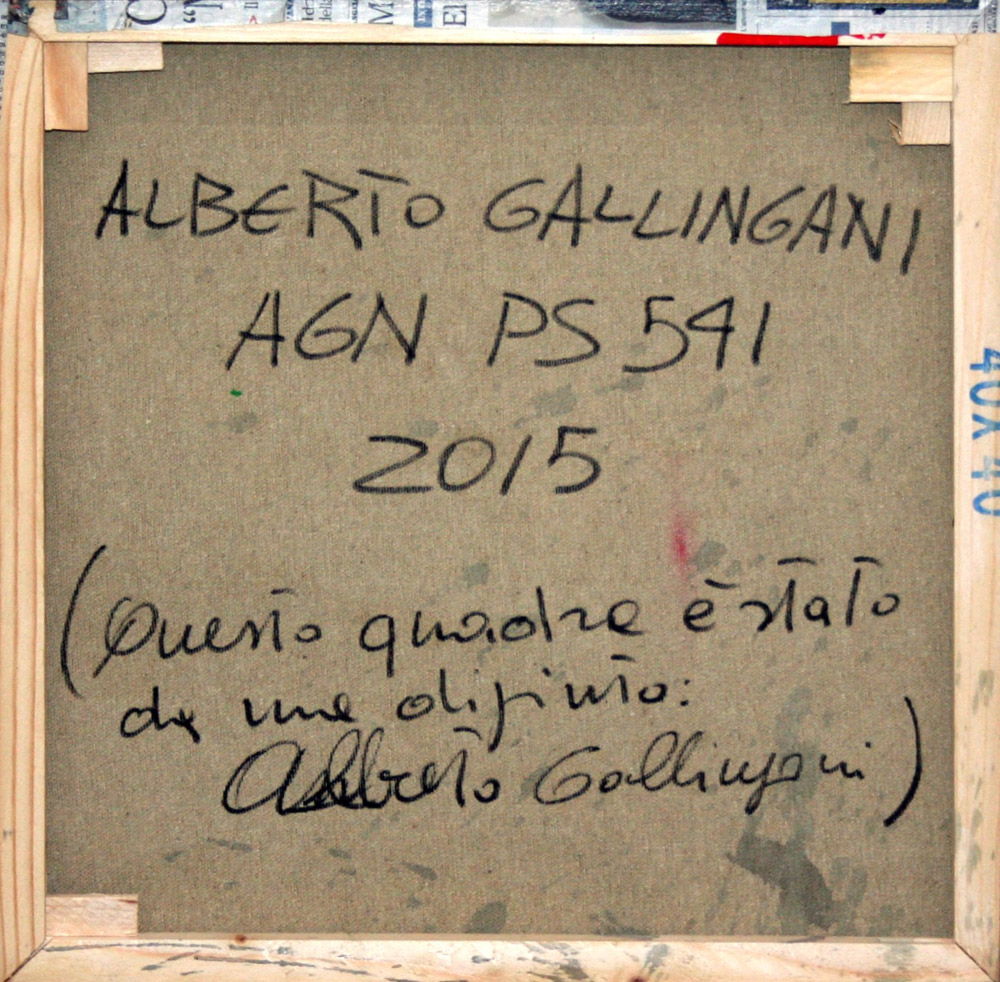 ALBERTO GALLINGANI
AGN PS 541
2015
(Questo quadro è stato
da me dipinto:
Alberto Gallingani)
40X40